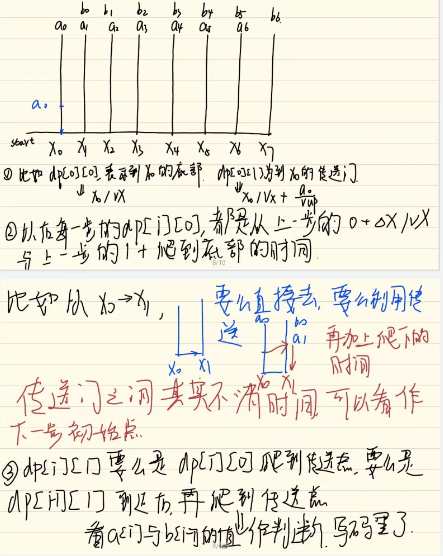 b₀ b₁ b₂ b₃ b₄ b₅ b₆
a₀ a₁ a₂ a₃ a₄ a₅ a₆
a₀
start X₀ X₁ X₂ X₃ X₄ X₅ X₆ X₇
① 比如 dp[0][0] 表示到 X₀ 的底部. dp[0][1] 为到 X₀ 的传送门
X₀/VX X₀/VX + a₀/Vup
② 以后每一步的 dp[i][0], 都是从上一步的 0 + ΔX/VX
与上一步的 1 + 爬到底部的时间.
8/10
比如从 X₀→X₁, 要么直接去, 要么利用传
送 a₀ b₀ a₁ 再加上爬下的
时间
X₀ X₁ X₀ X₁
传送门之间其实不消时间, 可以看作
下一步初始点.
③ dp[i][1] 要么是 dp[i][0] 爬到传送点, 要么是
dp[i-1][1] 到, 再爬到传送点
看 a[i] 与 b[i-1] 的值 作判断, 写码里了.